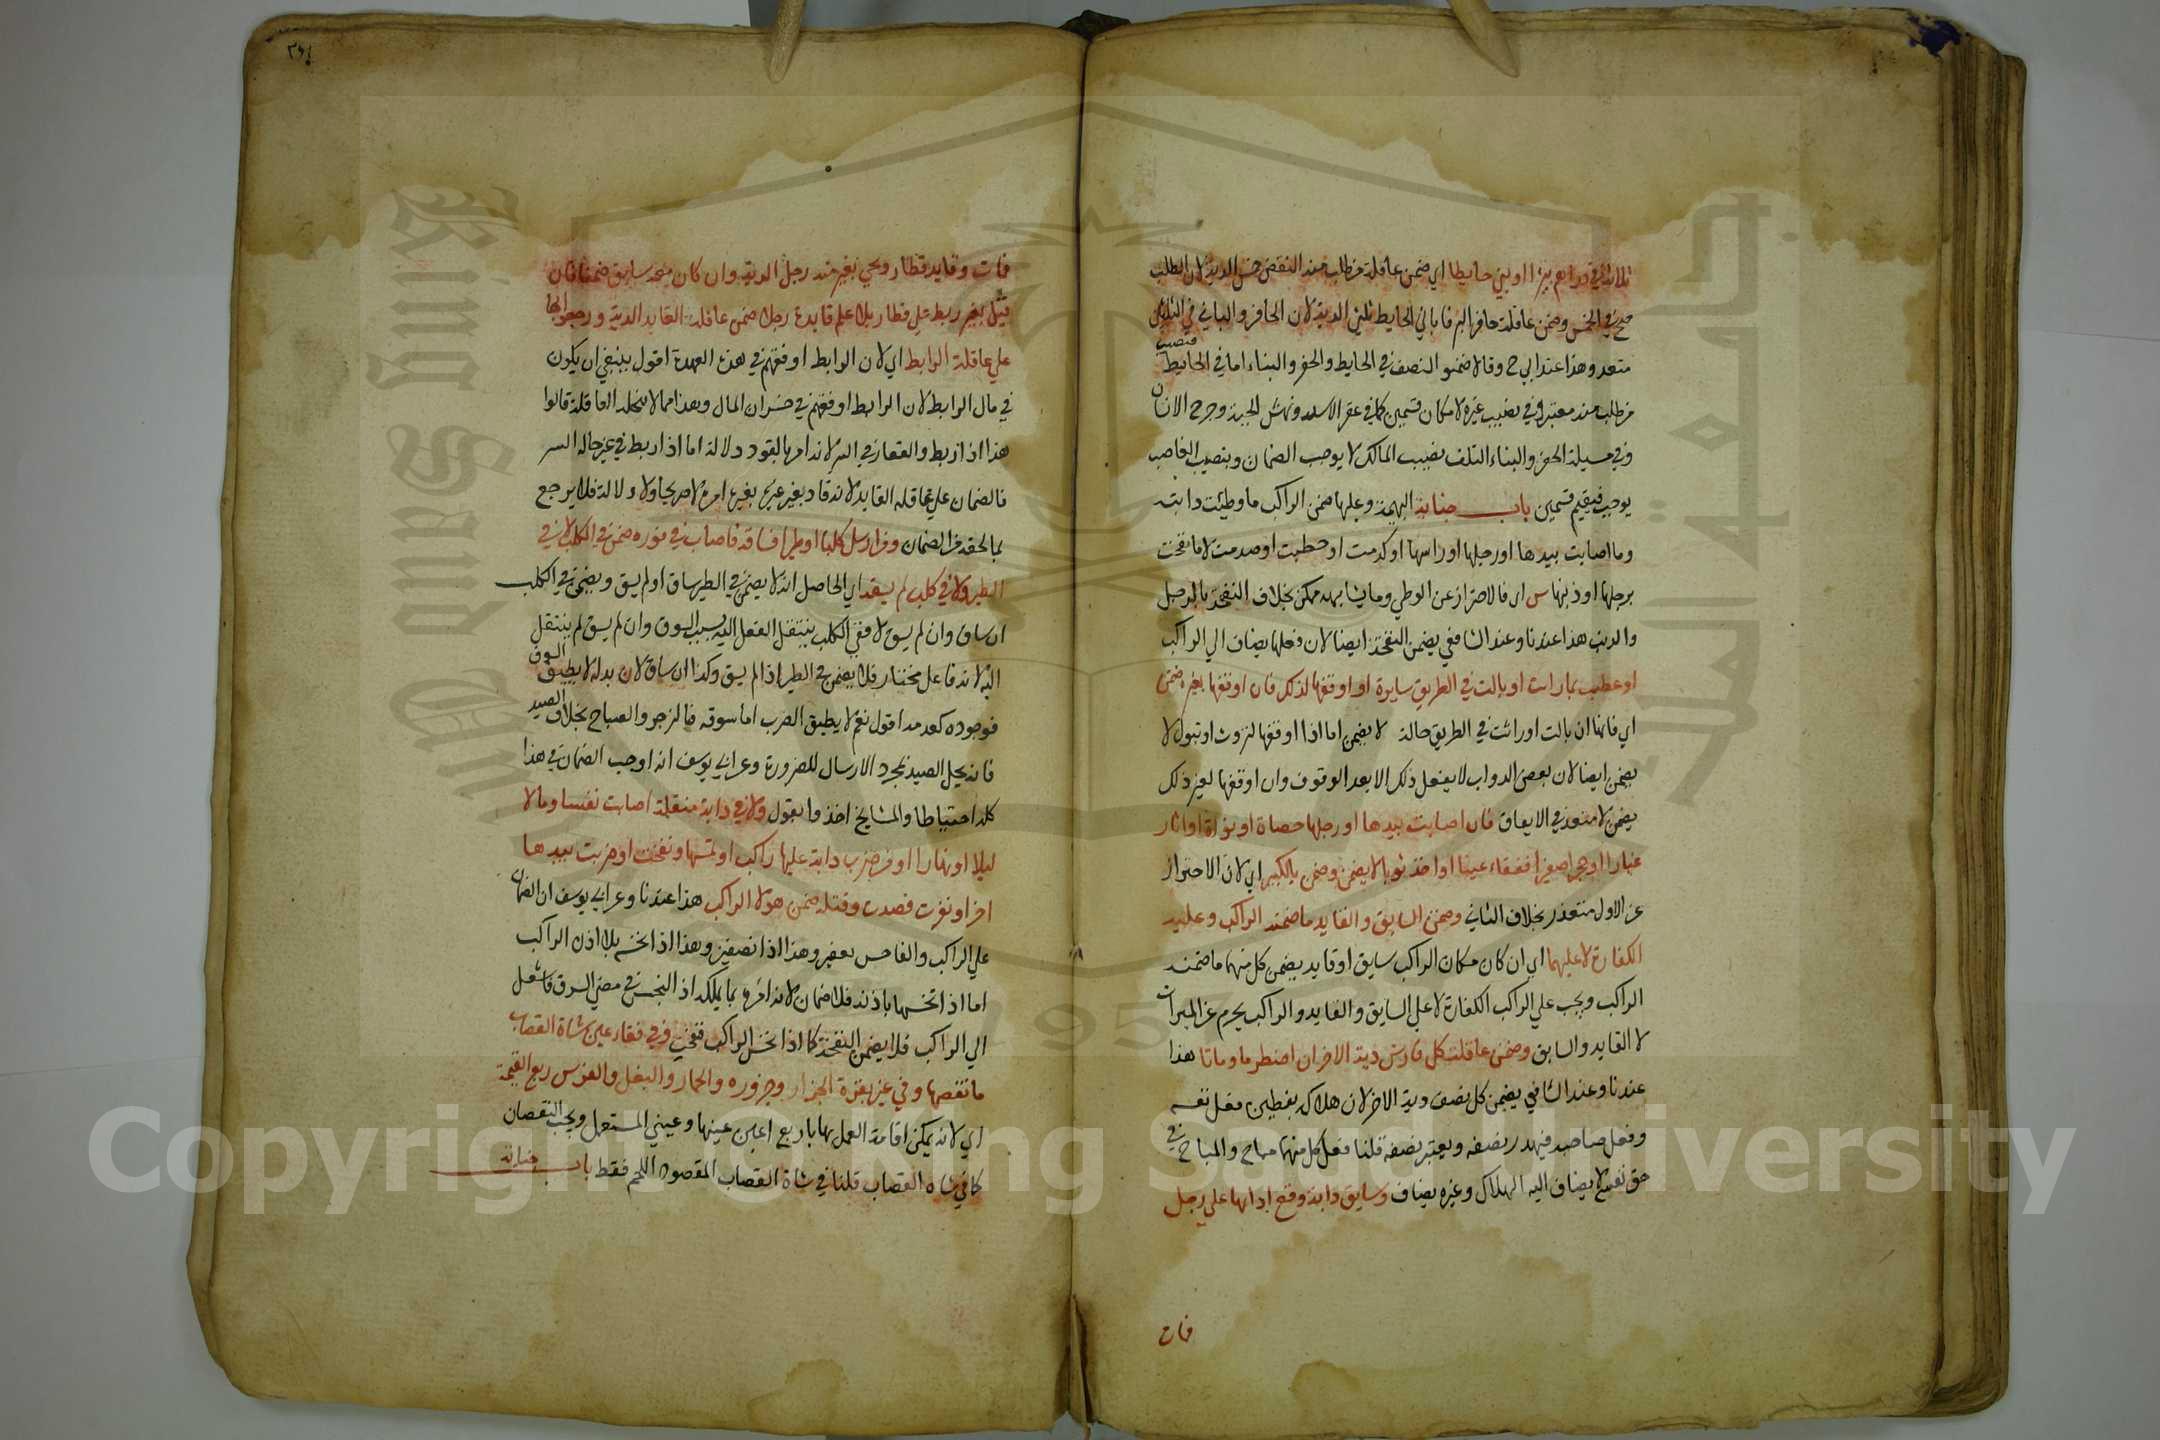 ثلاثة في دارهم بيرا او بني حايطا اي ضمن عاقلة من طلب منه النقض خمس الدية لان الطلب
صح في الخمس وضمن عاقلة حافر البير او باني الحايط ثلثي الدية لان الحافر والباني في الثلثين
متعد وهذا عند ابي ح وقالا ضمنوا النصف في الحايط والحفر والبناء اما في الحايط فنصيب
من طلب منه معتبر وفي نصيب غيره لا فكان قسمين كما في عقر الاسد ونهش الحية وجرح الانسان
وفي مسيلة الحفر والبناء التلف بنصيب المالك لا يوجب الضمان وبنصيب الغاصب
يوجب فيقسم قسمين باب جناية البهيمة وعليها ضمن الراكب ما وطئت دابته
وما اصابت بيدها او رجلها او راسها او كدمت او خبطت او صدمت لا ما نفحت
برجلها او ذنبها س اي فالاحتراز عن الوطي وما يشابهه ممكن بخلاف النفحة بالرجل
والذنب هذا عندنا وعند الشافعي يضمن النفحة ايضا لان فعلها يضاف الي الراكب
او عطب بما راثت او بالت في الطريق سايرة او اوقفها لذلك فان اوقفها لغيره ضمن
اي فانها ان بالت او راثت في الطريق حالة لا يضمن اما اذا اوقفها لتروث او تبول لا
يضمن ايضا لان بعض الدواب لا يفعل ذلك الا بعد الوقوف وان اوقفها لغير ذلك
يضمن لانه متعد في الايقاف فان اصابت بيدها او رجلها حصاة او نواة او اثار
غبارا او حجرا صغيرا ففقاء عينا او افسد ثوبا لا يضمن وضمن بالكبير اي لان الاحتراز
عن الاول متعذر بخلاف الثاني وضمن السايق والقايد ما ضمنه الراكب وعليه
الكفارة لا عليهما اي ان كان مكان الراكب سايق او قايد يضمن كل منهما ما ضمنه
الراكب ويجب علي الراكب الكفارة لا علي السايق والقايد والراكب يحرم عن الميراث
لا القايد والسايق وضمن عاقلة كل فارس دية الاخر ان اصطدما وماتا هذا
عندنا وعند الشافعي يضمن كل نصف دية الاخر لان هلاكه بفعلين فعل نفسه
وفعل صاحبه فيهدر نصفه ويعتبر نصفه قلنا فعل كل منهما مباح والمباح في
حق نفسه لا يضاف اليه الهلاك وغيره يضاف وسايق دابة وقع اداتها علي رجل
فمات
٣٦٤
فمات وقايد قطار وطي بعير منه رجلا الدية وان كان معه سايق ضمنا فان
قتل بعير ربط علي قطار بلا علم قايده رجلا ضمن عاقلة القايد الدية ورجعوا بها
علي عاقلة الرابط اي لان الرابط اوقعهم في هذه العهدة اقول ينبغي ان يكون
في مال الرابط لان الرابط اوقعهم في خسران المال وهذا مما لا تتحمله العاقلة قالوا
هذا اذا ربط والقطار في السير لانه امر بالقود دلالة اما اذا ربط في غير حالة السير
فالضمان علي عاقلة القايد لانه قاد بعير غيره بغير امره لا صريحا ولا دلالة فلا يرجع
بما لحقه من الضمان ومن ارسل كلبا او طيرا فساقه فاصاب في فوره ضمن في الكلب لا في
الطير ولا في كلب لم يسقه اي الحاصل انه لا يضمن في الطير ساق او لم يسق ويضمن في الكلب
ان ساق وان لم يسق لا ففي الكلب ينتقل الفعل اليه بسبب السوق وان لم يسق لم ينتقل
اليه لانه فاعل مختار فلا يضمن في الطير اذا لم يسق وكذا ان ساق لان بدنه لا يطيق السوق
فوجوده كعدمه اقول نعم لا يطيق الضرب اما سوقه فالزجر والصياح بخلاف الصيد
فانه يحل الصيد بمجرد الارسال للضرورة وعن ابي يوسف انه اوجب الضمان في هذا
كله احتياطا والمشايخ اخذوا بقوله ولا في دابة منفلتة اصابت نفسا وما لا
ليلا او نهارا او من ضرب دابة عليها راكب او نخسها ونفحت او ضربت بيدها
اخر او نفرت فصدمت وقتلته ضمن هو لا الراكب هذا عندنا وعن ابي يوسف ان الضمان
علي الراكب والناخس نصفين وهذا اذا نخس بلا اذن الراكب
اما اذا نخسها باذنه فلا ضمان لانه امره بما يملكه اذ النخس في معني السوق فانتقل
الي الراكب فلا يضمن النفحة كما اذا نخس الراكب فنفحت وفي فقاء عين شاة القصاب
ما نقصها وفي عين بقرة الجزار وجزوره والحمار والبغل والفرس ربع القيمة
اي لانه يمكن اقامة العمل بها باربع اعين عينيها وعيني المستعمل ويجب النقصان
كما في شاة القصاب قلنا في شاة القصاب المقصود اللحم فقط باب جناية
Copyright © King Saud University
King Saud University
جامعة الملك سعود
1957